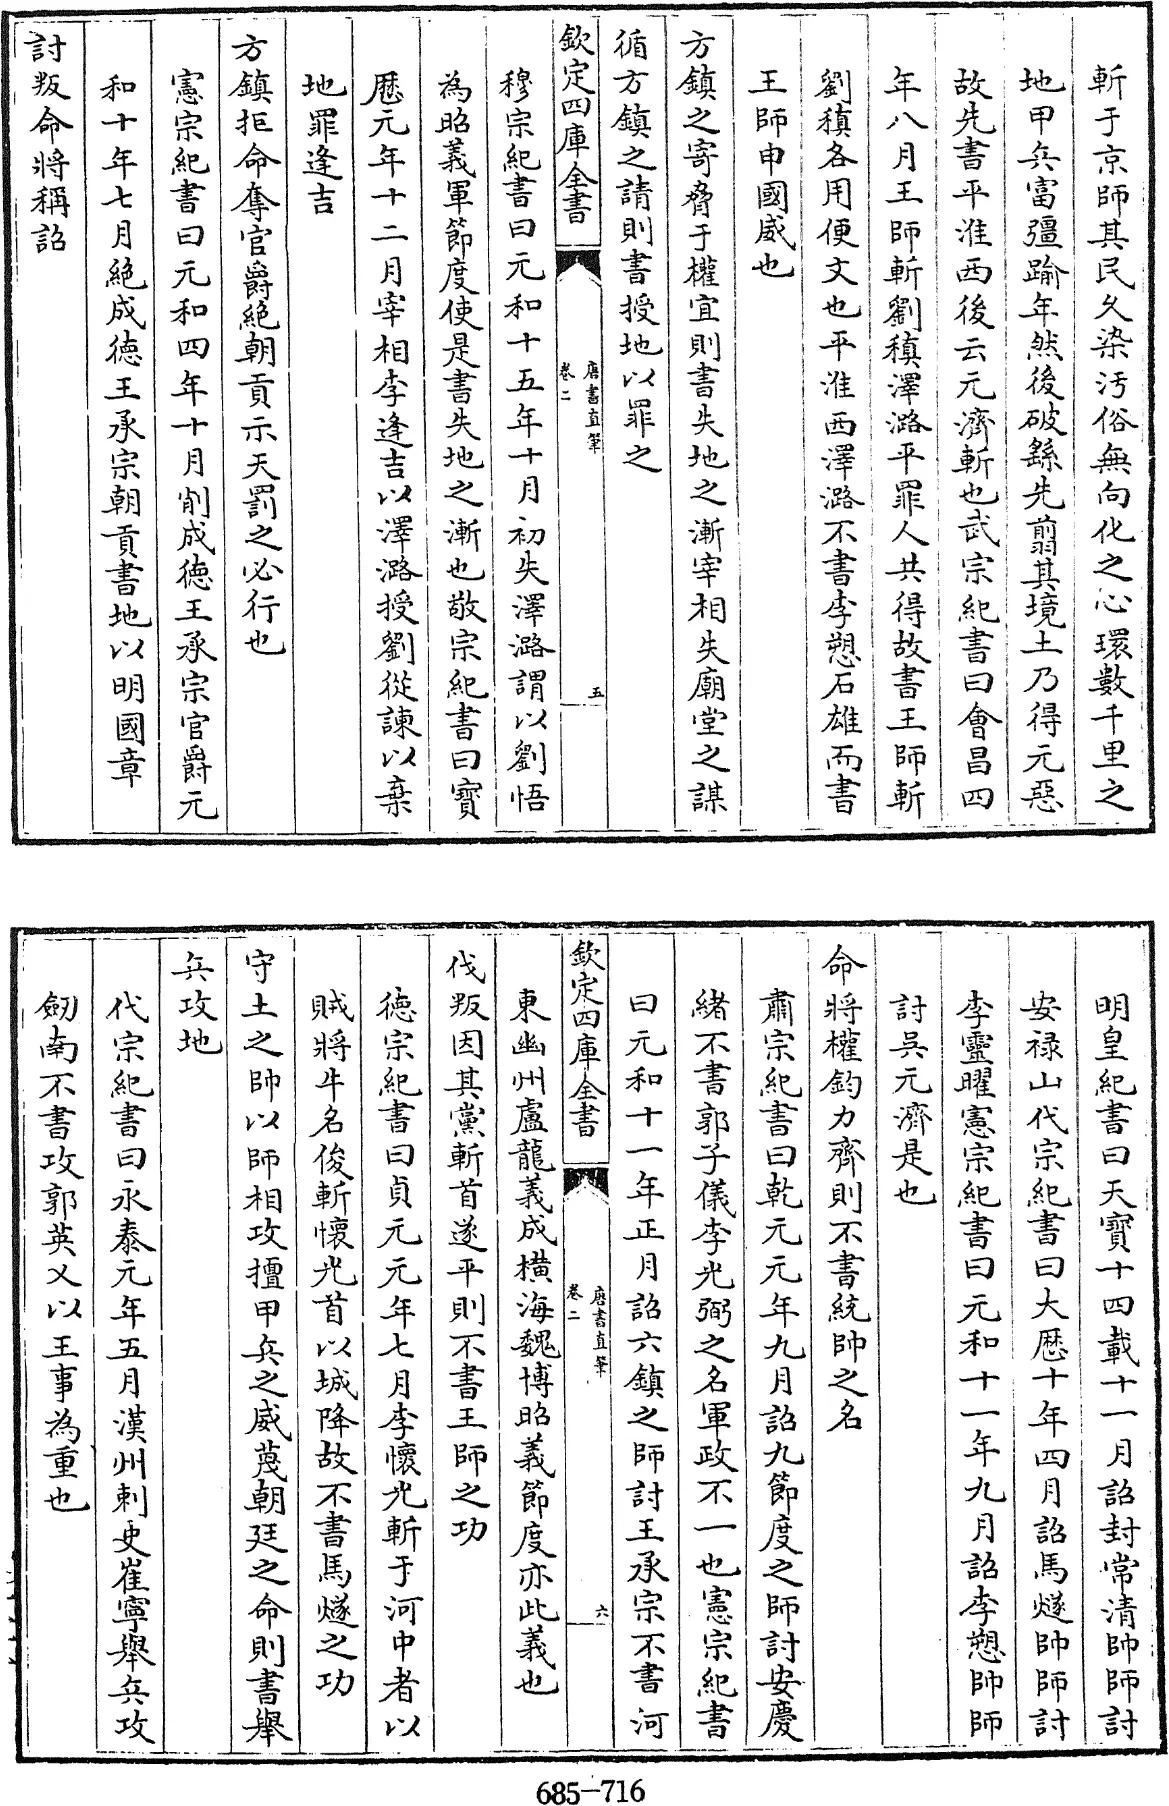 斬于京師其民久染汚俗無向化之心環數千里之
地甲兵富彊踰年然後破繇先翦其境土乃得元惡
故先書平淮西後云元濟斬也武宗紀書曰會昌四
年八月王師斬劉稹澤潞平罪人共得故書王師斬
劉稹各用便文也平淮西澤潞不書李愬石雄而書
王師申國威也
方鎮之寄脅于權宜則書失地之漸宰相失廟堂之謀
循方鎮之請則書授地以罪之
欽定四庫全書
唐書直筆
卷二
五
穆宗紀書曰元和十五年十月初失澤潞謂以劉悟
為昭義軍節度使是書失地之漸也敬宗紀書曰寶
歴元年十二月宰相李逢吉以澤潞授劉從諫以棄
地罪逢吉
方鎮拒命奪官爵絶朝貢示天罰之必行也
憲宗紀書曰元和四年十月削成徳王承宗官爵元
和十年七月絶成徳王承宗朝貢書地以明國章
討叛命將稱詔
明皇紀書曰天寶十四載十一月詔封常清帥師討
安禄山代宗紀書曰大厯十年四月詔馬燧帥師討
李靈曜憲宗紀書曰元和十一年九月詔李愬帥師
討吳元濟是也
命將權鈞力齊則不書統帥之名
肅宗紀書曰乾元元年九月詔九節度之師討安慶
緒不書郭子儀李光弼之名軍政不一也憲宗紀書
曰元和十一年正月詔六鎮之師討王承宗不書河
欽定四庫全書
唐書直筆
卷二
六
東幽州盧龍義成横海魏博昭義節度亦此義也
伐叛因其黨斬首遂平則不書王師之功
徳宗紀書曰貞元元年七月李懷光斬于河中者以
賊將牛名俊斬懷光首以城降故不書馬燧之功
守土之帥以師相攻擅甲兵之威蔑朝廷之命則書舉
兵攻地
代宗紀書曰永泰元年五月漢州刺史崔寧舉兵攻
劒南不書攻郭英乂以王事為重也
685-716